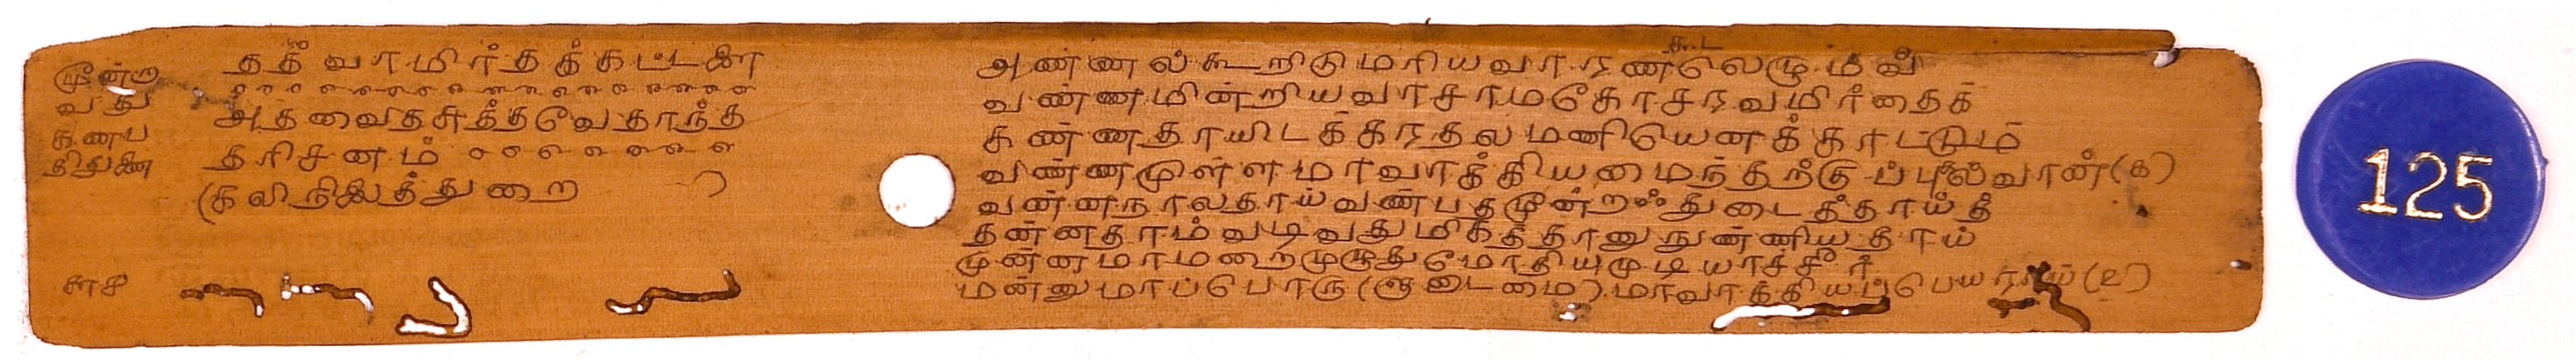 மூன்று
வது
கணப
திதுணை
தத்வாமிர்தக்கட்டளை
அத்வைதசுத்தவேதாந்த
தரிசனம்
(கலிநிலைத்துறை )
கூட
அண்ணல்கூறிடுமரியவாரணலெழும்வீ
வண்ணமின்றியவாசாமகோசரவமிர்தைக்
கண்ணதாயிடக்கரதலமணியெனக்காட்டும்
விண்ணமுள்ளமாவாக்கியமைந்தற்குப்புலவான்(௧)
வன்னநாலதாய்வண்பதமூன்றஃதுடைத்தாய்த்
தன்னதாம்வடிவதுமிகத்தானுநுண்ணியதாய்
முன்னமாமறைமுழுதுமோதியுமுடியாச்சீர்
மன்னுமாப்பொரு(ளுடைமை)மாவாக்கியப்பெயராய்(௨)
125